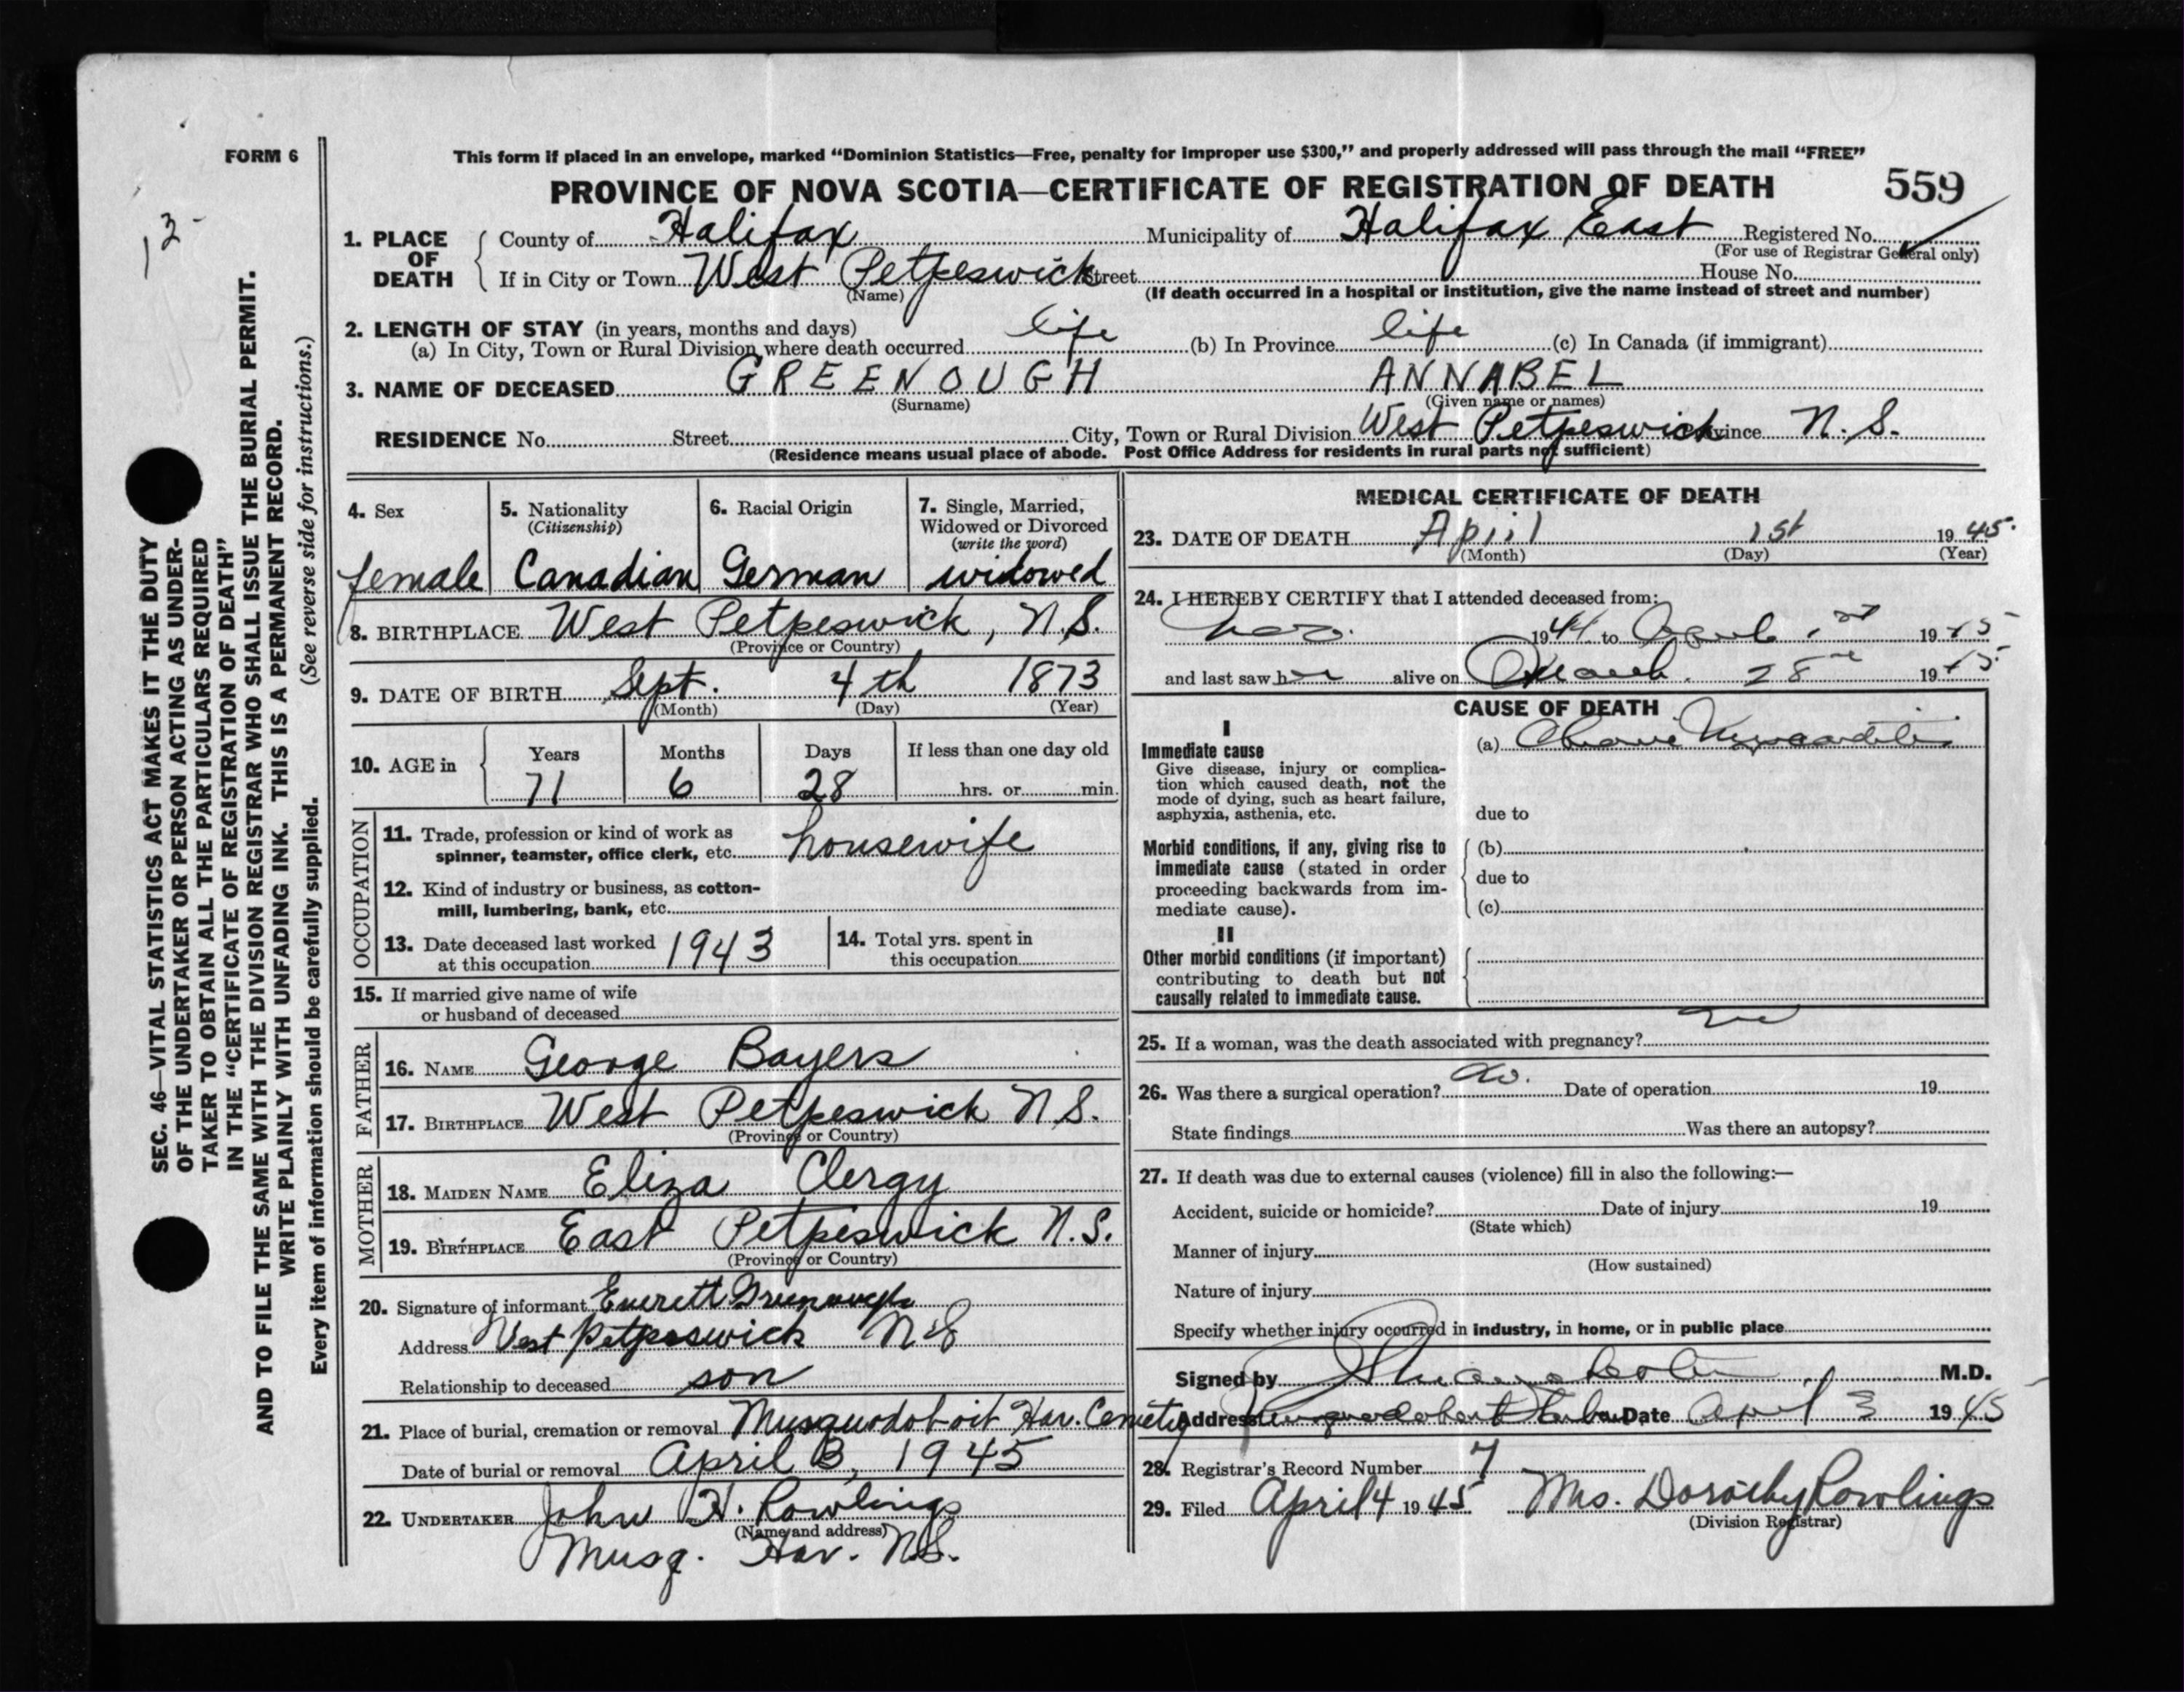 FORM 6
This form if placed in an envelope, marked "Dominion Statistics—Free, penalty for improper use $300," and properly addressed will pass through the mail "FREE"
PROVINCE OF NOVA SCOTIA—CERTIFICATE OF REGISTRATION OF DEATH 559
1. PLACE OF DEATH
County of Halifax Municipality of Halifax East Registered No.
(For use of Registrar General only)
If in City or Town West Petpeswick Street House No.
(Name) (If death occurred in a hospital or institution, give the name instead of street and number)
2. LENGTH OF STAY (in years, months and days)
(a) In City, Town or Rural Division where death occurred life (b) In Province life (c) In Canada (if immigrant)
3. NAME OF DECEASED GREENOUGH ANNABEL
(Surname) (Given name or names)
RESIDENCE No. Street City, Town or Rural Division West Petpeswick Province N.S.
(Residence means usual place of abode. Post Office Address for residents in rural parts not sufficient)
4. Sex
female
5. Nationality
(Citizenship)
Canadian
6. Racial Origin
German
7. Single, Married,
Widowed or Divorced
(write the word)
widowed
8. BIRTHPLACE West Petpeswick, N.S.
(Province or Country)
9. DATE OF BIRTH Sept. 4th 1873
(Month) (Day) (Year)
10. AGE in
Years Months Days If less than one day old
71 6 28 hrs. or min.
OCCUPATION
11. Trade, profession or kind of work as
spinner, teamster, office clerk, etc. housewife
12. Kind of industry or business, as cotton-
mill, lumbering, bank, etc.
13. Date deceased last worked
at this occupation 1943
14. Total yrs. spent in
this occupation
15. If married give name of wife
or husband of deceased
FATHER
16. NAME George Bayers
17. BIRTHPLACE West Petpeswick N.S.
(Province or Country)
MOTHER
18. MAIDEN NAME Eliza Clergy
19. BIRTHPLACE East Petpeswick N.S.
(Province or Country)
20. Signature of informant Everett Greenough
Address West Petpeswick NS
Relationship to deceased son
21. Place of burial, cremation or removal Musquodoboit Har. Cemetery
Date of burial or removal April 3, 1945
22. UNDERTAKER John H. Rowlings
(Name and address)
Musq. Har. N.S.
MEDICAL CERTIFICATE OF DEATH
23. DATE OF DEATH April 1st 1945
(Month) (Day) (Year)
24. I HEREBY CERTIFY that I attended deceased from:
Nov. 1944 to April 1st 1945
and last saw her alive on March 28 1945
CAUSE OF DEATH
I
Immediate cause
Give disease, injury or complica-
tion which caused death, not the
mode of dying, such as heart failure,
asphyxia, asthenia, etc.
(a) Chronic Myocarditis
due to
Morbid conditions, if any, giving rise to
immediate cause (stated in order
proceeding backwards from im-
mediate cause).
(b)
due to
(c)
II
Other morbid conditions (if important)
contributing to death but not
causally related to immediate cause.
25. If a woman, was the death associated with pregnancy? no
26. Was there a surgical operation? No. Date of operation 19
State findings Was there an autopsy?
27. If death was due to external causes (violence) fill in also the following:—
Accident, suicide or homicide? Date of injury 19
(State which)
Manner of injury
(How sustained)
Nature of injury
Specify whether injury occurred in industry, in home, or in public place
Signed by M.D.
Address Musquodoboit Harbour Date April 3 1945
28. Registrar's Record Number 7
29. Filed April 4 1945 Mrs. Dorothy Rowlings
(Division Registrar)
SEC. 46—VITAL STATISTICS ACT MAKES IT THE DUTY
OF THE UNDERTAKER OR PERSON ACTING AS UNDER-
TAKER TO OBTAIN ALL THE PARTICULARS REQUIRED
IN THE "CERTIFICATE OF REGISTRATION OF DEATH"
AND TO FILE THE SAME WITH THE DIVISION REGISTRAR WHO SHALL ISSUE THE BURIAL PERMIT.
WRITE PLAINLY WITH UNFADING INK. THIS IS A PERMANENT RECORD.
Every item of information should be carefully supplied. (See reverse side for instructions.)